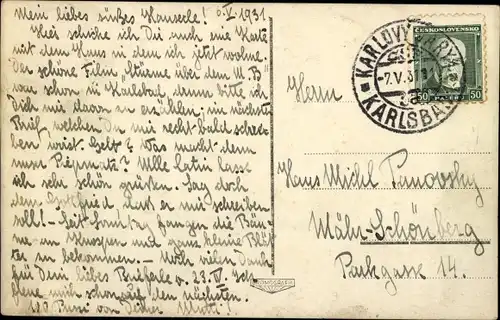 6.V.1931
Mein liebes süßes Hauserle!
Hier schicke ich Dir auch eine Karte
mit dem Haus in dem ich jetzt wohne.
Der schöne Film „Stürme über dem M.B
war schon in Karlsbad, denn bitte ich
Dich mir davon zu erzählen, im nächsten
Brief, welchen Du mir recht bald schrei-
ben wirst. Gelt? Was macht denn
unser Piepmatz?
ich sehr schön grüßen. Sag doch
dem er mir schreiben
soll! – Seit Sonntag fangen die Bäu-
me an Knospen und ganz kleine Blät-
ter zu bekommen. – Noch vielen Dank
für Dein liebes Brieferle v. 23.IV. Ich
freue mich schon auf den nächsten.
100 Pussi von Deiner Mutti!
KARLOVY VARY
KARLSBAD
7.V.31
ČESKOSLOVENSKO
50 50
Herrn
Hans Michl Panovsky
Mähr-Schönberg
Parkgasse 14.